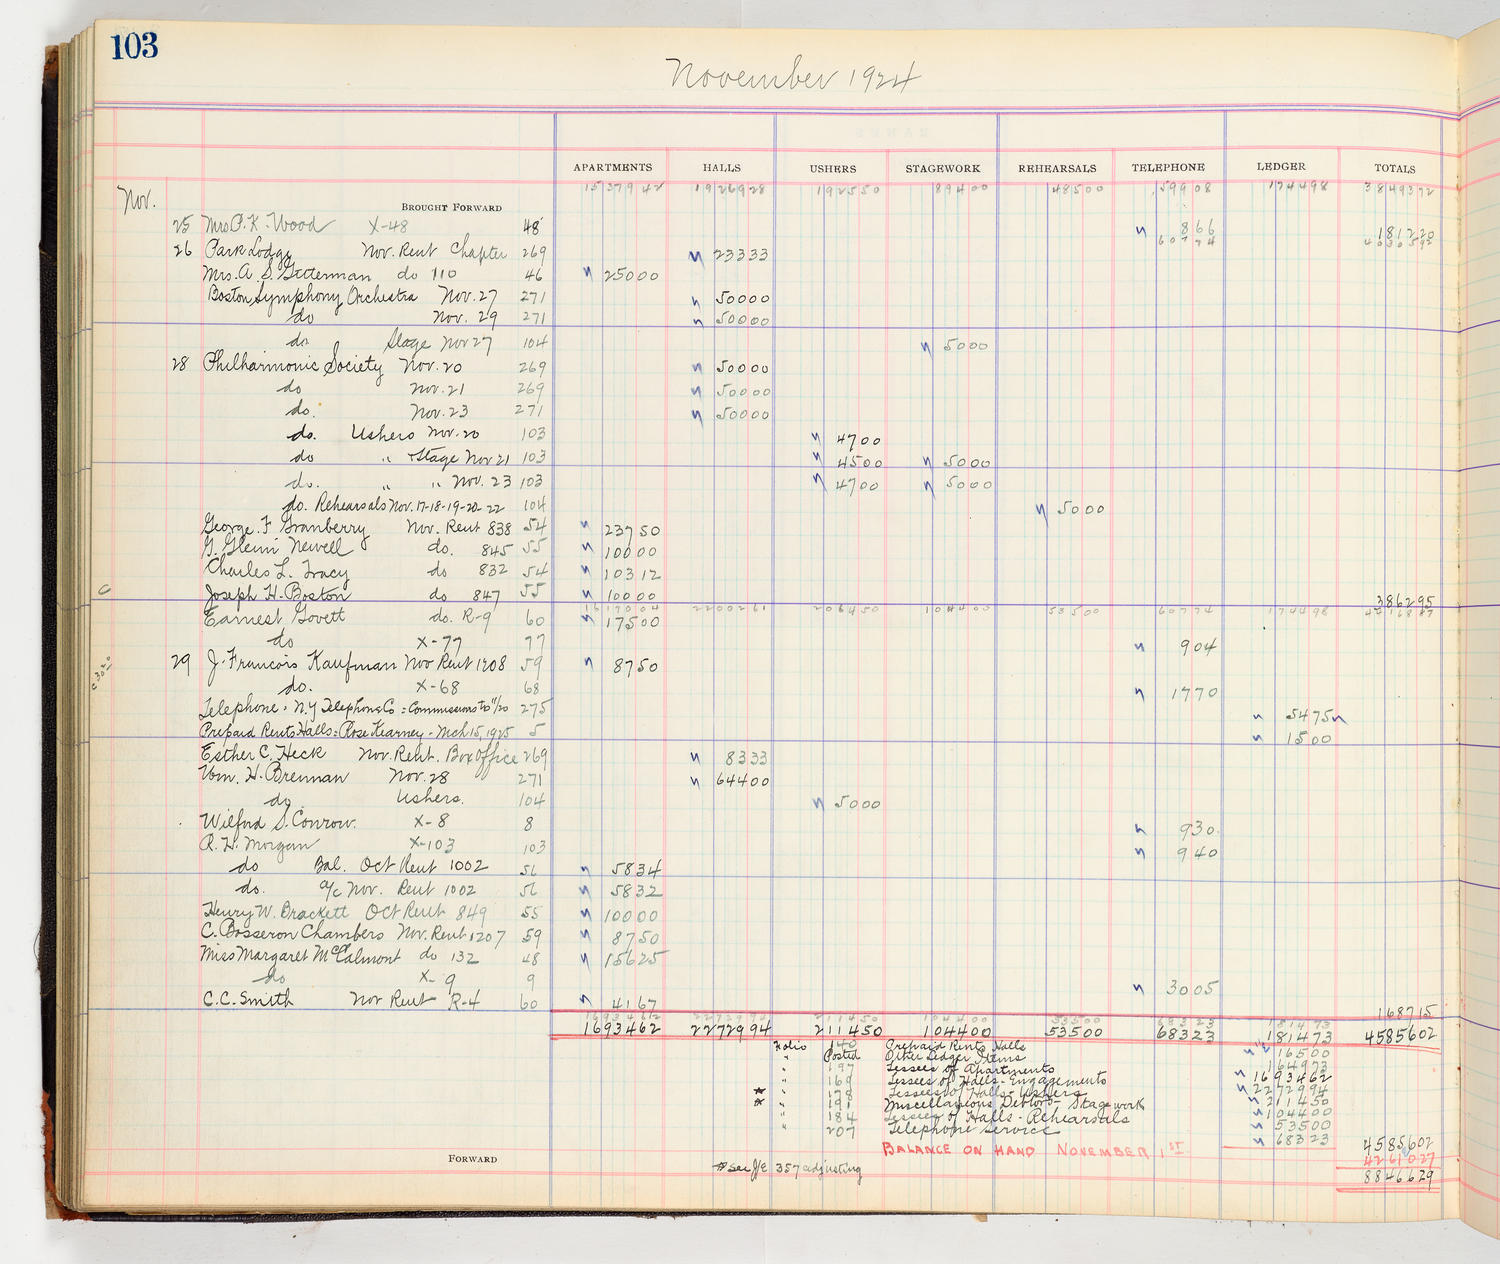 103
November 1924
APARTMENTS HALLS USHERS STAGEWORK REHEARSALS TELEPHONE LEDGER TOTALS
Nov. BROUGHT FORWARD 1537942 1926928 192550 89400 48500 59908 174498 3849372
25 Mrs P. K. Wood X-48 48 866 181220
60774 4030592
26 Park Lodge Nov. Rent Chapter 269 23333
Mrs. A. S. Gitterman do 110 46 25000
Boston Symphony Orchestra Nov. 27 271 50000
do Nov. 29 271 50000
do Stage Nov 27 104 5000
28 Philharmonic Society Nov. 20 269 50000
do Nov. 21 269 50000
do. Nov. 23 271 50000
do. Ushers Nov. 20 103 4700
do " Stage Nov 21 103 4500 5000
do. " " Nov. 23 103 4700 5000
do. Rehearsals Nov. 17-18-19-20-22 104 5000
George. F Granberry Nov. Rent 838 54 23750
G. Glenn Newell do. 845 55 10000
Charles L. Tracy do 832 54 10312
Joseph H. Boston do 847 55 10000 386295
1617004 2200261 206450 104400 53500 60774 174498 4416887
Earnest Govett do. R-9 60 17500
do X-77 77 904
29 J. Francois Kaufman Nov Rent 1208 59 8750
do. X-68 68 1770
Telephone = N.Y Telephone Co = Commissions to 11/20 275 5475
Prepaid Rents Halls = Rose Kearney - Mch 15, 1925 5 1500
Esther C. Heck Nov. Rent. Box Office 269 8333
Wm. H. Brennan Nov. 28 271 64400
do. Ushers. 104 5000
Wilford S. Conrow. X-8 8 930
R. H. Morgan X-103 103 940
do Bal. Oct Rent 1002 56 5834
do. a/c Nov. Rent 1002 56 5832
Henry W. Brackett Oct Rent 849 55 10000
C. Bosseron Chambers Nov. Rent 1207 59 8750
Miss Margaret McCalmont do 132 48 15625
do X-9 9 3005
C. C. Smith Nov Rent R-4 60 4167 168715
1693462 2272994 211450 104400 53500 68323 181473
1693462 2272994 211450 104400 53500 68323 181473 4585602
Folio 140 Prepaid Rents Halls 16500
" Posted Other Ledger Items 164973
" 197 Lessees of Apartments 1693462
" 169 Lessees of Halls - Engagements 2272994
* " 178 Lessees of Halls - Ushers 211450
* " 191 Miscellaneous Debtors - Stagework 104400
" 184 Lessees of Halls - Rehearsals 53500
" 207 Telephone Service 68323 4585602
BALANCE ON HAND NOVEMBER 1ST. 4261027
FORWARD * see J/E 357 adjusting 8846629